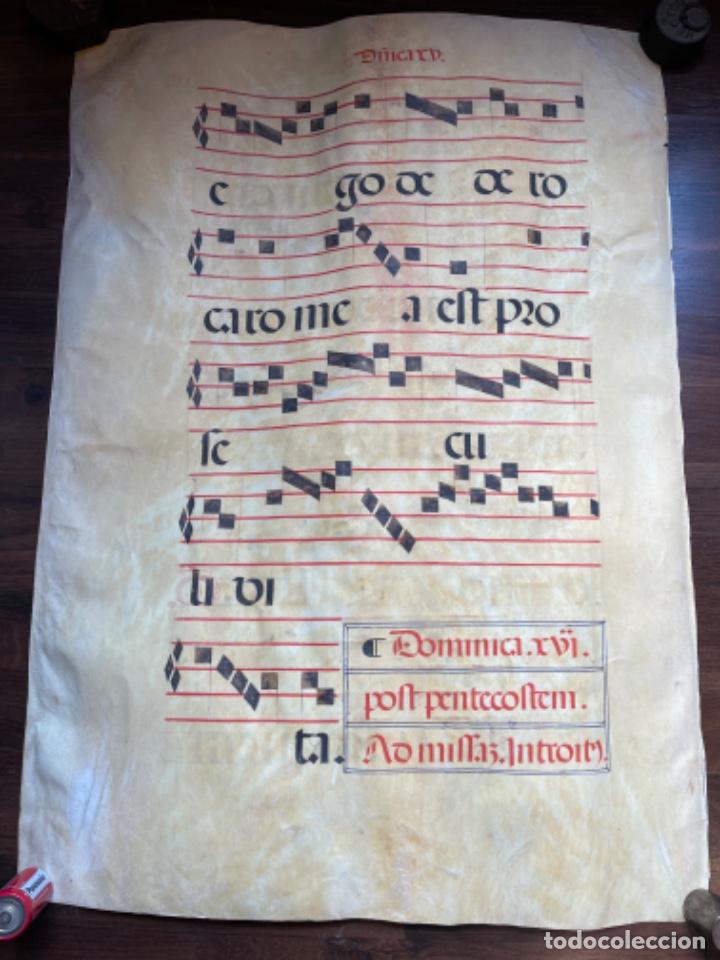 Dñica xv.
e go de de ro
caro me a est pro
se cu
li vi
ta.
¶ Dominica. xvi.
post pentecostem.
Ad missaʒ. Introitꝰ.
todocoleccion